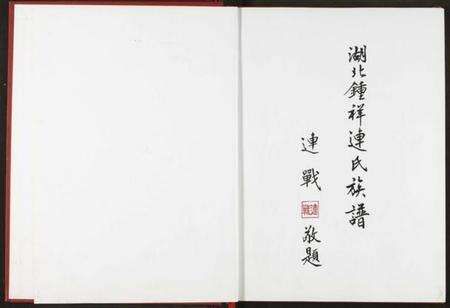 湖北鍾祥連氏族譜
連戰
敬題